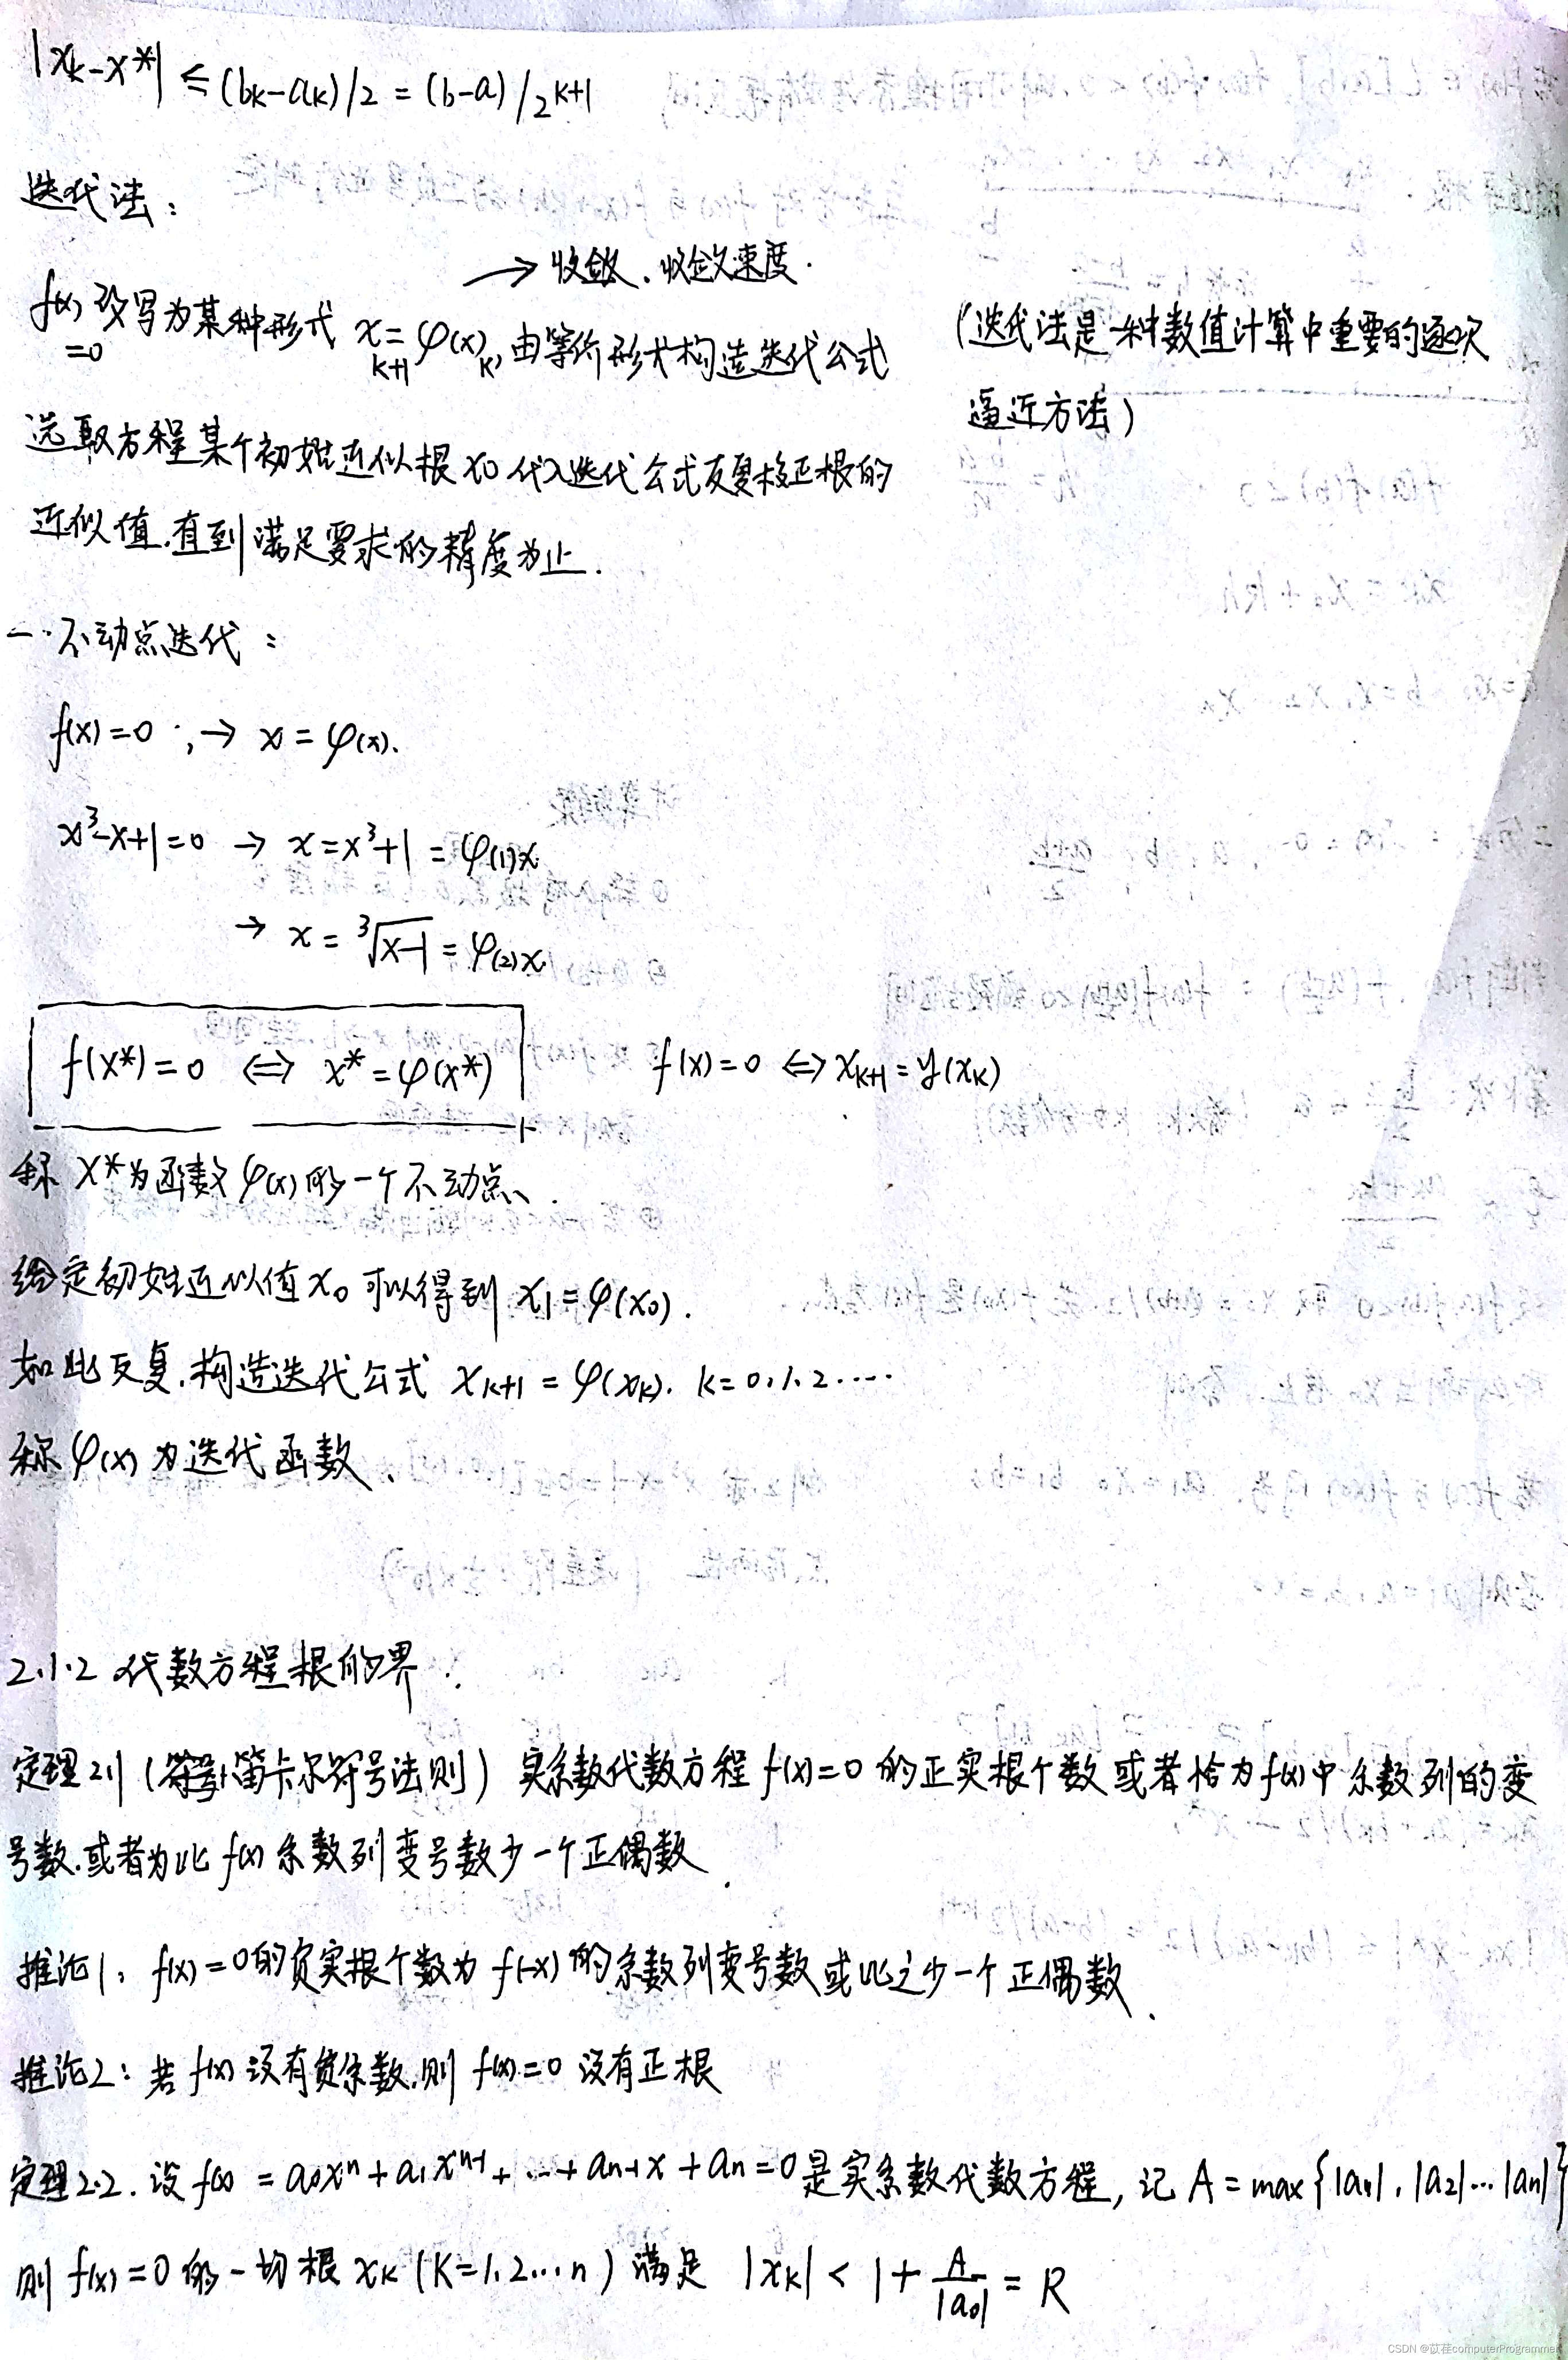 |xk-x*| ≤ (bk-ak)/2 = (b-a)/2^{k+1}
迭代法：
→ 收敛、收敛速度.
f(x)=0 改写为某种形式 x_{k+1}=φ(x)_k, 由等价形式构造迭代公式
(迭代法是一种数值计算中重要的逐次
逼近方法)
选取方程某个初始近似根 x0 代入迭代公式反复校正根的
近似值.直到满足要求的精度为止.
一.不动点迭代：
f(x)=0 ,→ x=φ(x).
x³-x+1=0 → x=x³+1=φ(1)x.
→ x=³√x-1=φ(2)x.
f(x*)=0 ⇔ x*=φ(x*)
f(x)=0 ⇔ x_{k+1}=y(x_k)
称 x*为函数φ(x)的一个不动点、.
给定初始近似值 x₀ 可以得到 x₁=φ(x₀).
如此反复.构造迭代公式 x_{k+1}=φ(x_k). k=0.1.2.....
称φ(x)为迭代函数.
2.1.2 代数方程根的界.
定理2.1 (笛卡尔符号法则) 实系数代数方程 f(x)=0 的正实根个数或者恰为f(x)中系数列的变
号数.或者为比 f(x) 系数列变号数少一个正偶数.
推论1, f(x)=0的负实根个数为 f(-x) 的系数列变号数或比之少一个正偶数.
推论2: 若 f(x) 没有负系数.则 f(x)=0 没有正根
定理2.2. 设 f(x) = a₀xⁿ+a₁x^{n-1}+...+a_{n-1}x+a_n=0是实系数代数方程, 记 A=max{|a₁|,|a₂|...|a_n|}
则 f(x)=0 的一切根 x_k (K=1.2...n) 满足 |x_k| < 1+A/|a₀| = R
CSDN @苡荏computerProgrammer